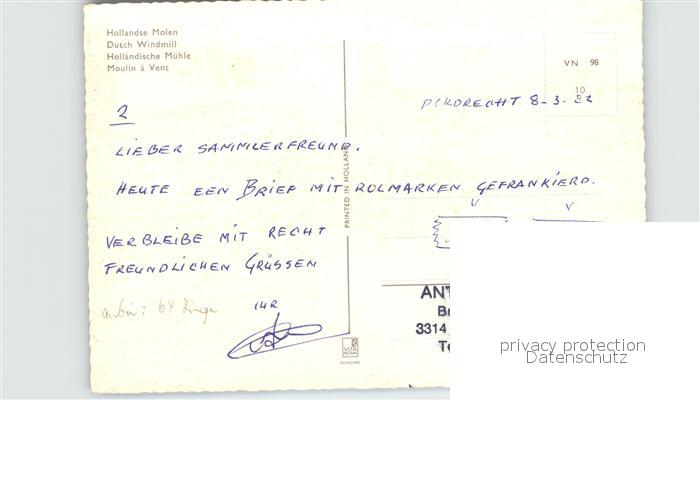 Hollandse Molen
Dutch Windmill
Holländische Mühle
Moulin à Vent
VN 98
10
DORDRECHT 8-3-82
2
LIEBER SAMMLERFREUND.
HEUTE EEN BRIEF MIT ROLMARKEN GEFRANKIERD.
VERBLEIBE MIT RECHT
FREUNDLICHEN GRÜSSEN
IHR
PRINTED IN HOLLAND
ANT
B
3314
T
VITA NOVA
privacy protection
Datenschutz